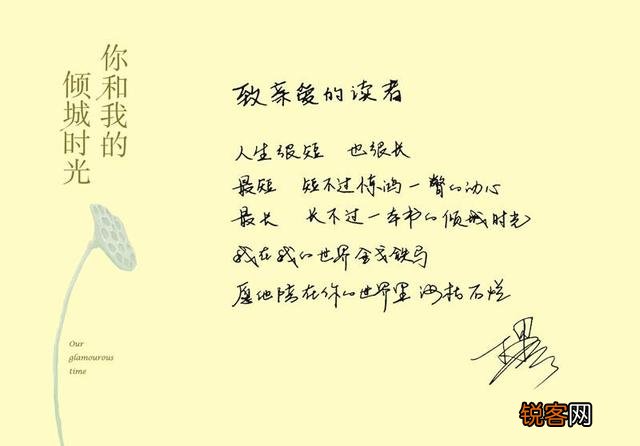 你和我的
倾城时光
致亲爱的读者
人生很短 也很长
最短 短不过惊鸿一瞥的动心
最长 长不过一本书的倾城时光
我在我的世界金戈铁马
愿他陪在你的世界里 海枯石烂
Our
glamourous
time
锐客网